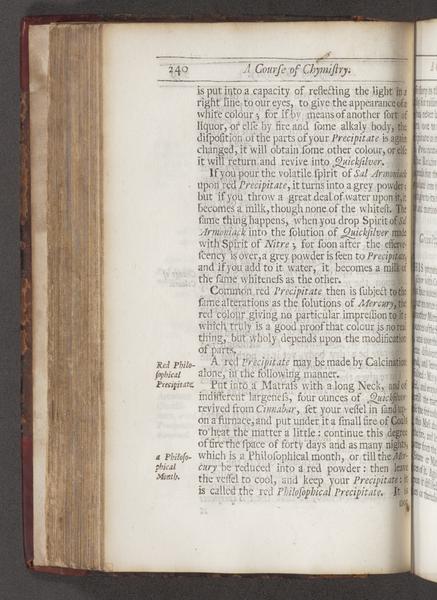 240 A Courſe of Chymiſtry.
is put into a capacity of reflecting the light in a
right line to our eyes, to give the appearance of a
white colour; for if by means of another ſort of
liquor, or elſe by fire and ſome alkaly body, the
diſpoſition of the parts of your Precipitate is again
changed, it will obtain ſome other colour, or elſe
it will return and revive into Quickſilver.
If you pour the volatile ſpirit of Sal Armoniack
upon red Precipitate, it turns into a grey powder;
but if you throw a great deal of water upon it, it
becomes a milk, though none of the whiteſt. The
ſame thing happens, when you drop Spirit of Sal
Armoniack into the ſolution of Quickſilver made
with Spirit of Nitre; for ſoon after the efferve-
ſcency is over, a grey powder is ſeen to Precipitate,
and if you add to it water, it becomes a milk of
the ſame whiteneſs as the other.
Common red Precipitate then is ſubject to the
ſame alterations as the ſolutions of Mercury, the
red colour giving no particular impreſſion to it;
which truly is a good proof that colour is no real
thing, but wholy depends upon the modification
of parts.
Red Philo-
ſophical
Precipitate.
A red Precipitate may be made by Calcination
alone, in the following manner.
Put into a Matraſs with a long Neck, and of
indifferent largeneſs, four ounces of Quickſilver
revived from Cinnabar, ſet your veſſel in ſand up-
on a furnace, and put under it a ſmall fire of Coals
to heat the matter a little: continue this degree
of fire the ſpace of forty days and as many nights,
a Philoſo-
phical
Month.
which is a Philoſophical month, or till the Mer-
cury be reduced into a red powder: then leave
the veſſel to cool, and keep your Precipitate: it
is called the red Philoſophical Precipitate. It is